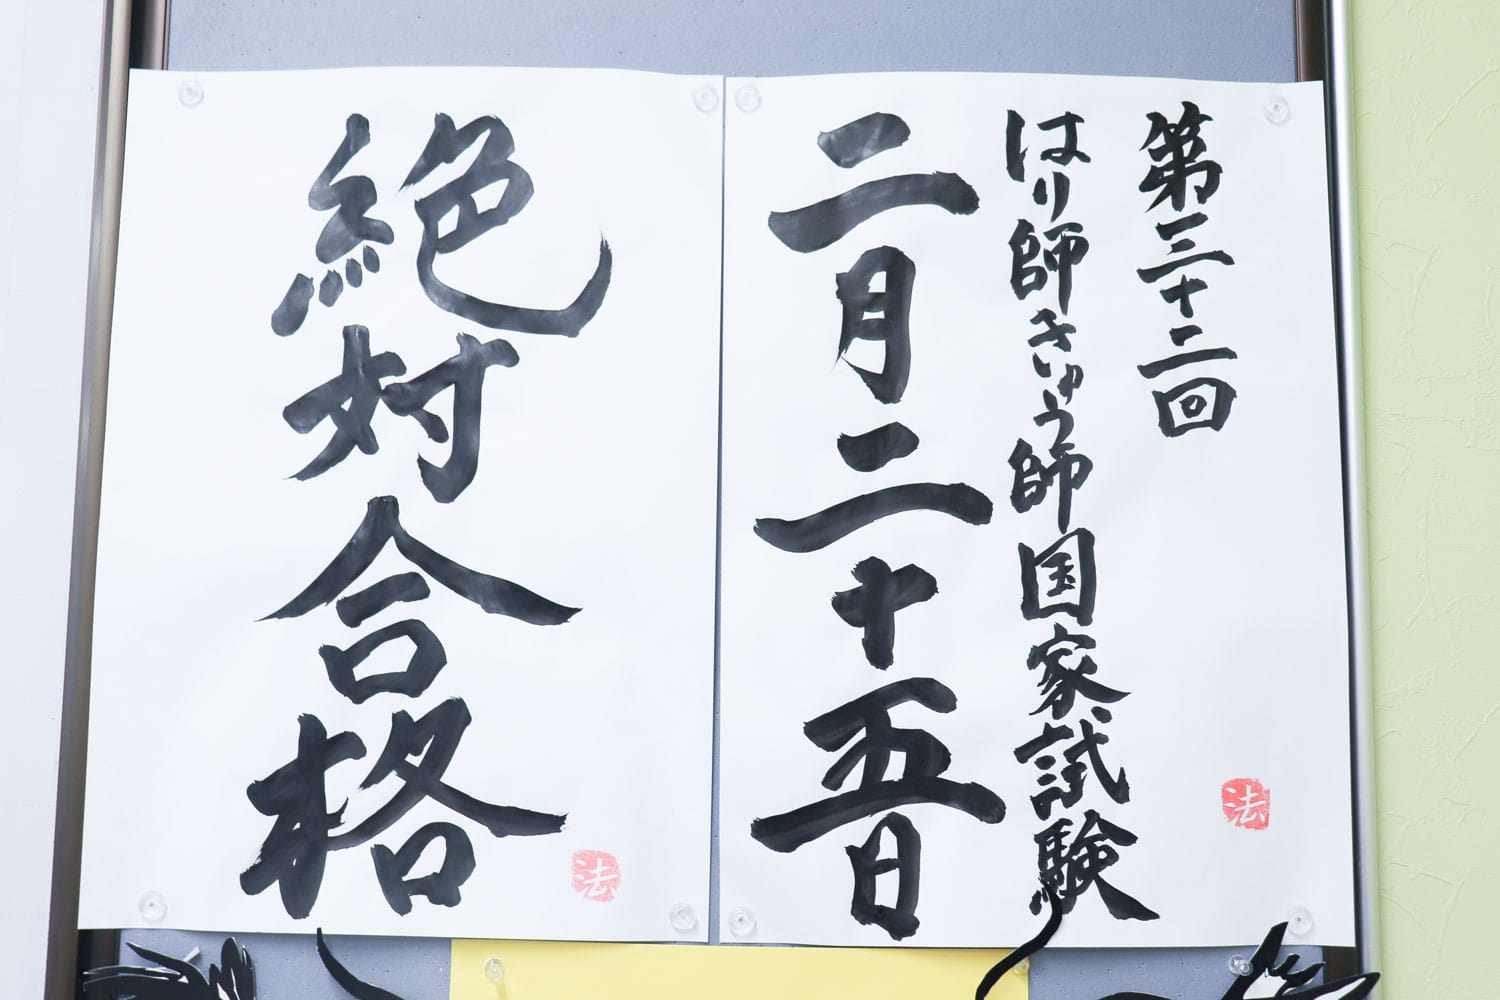 第三十二回
はり師きゅう師国家試験
二月二十五日
法
絶対合格
法